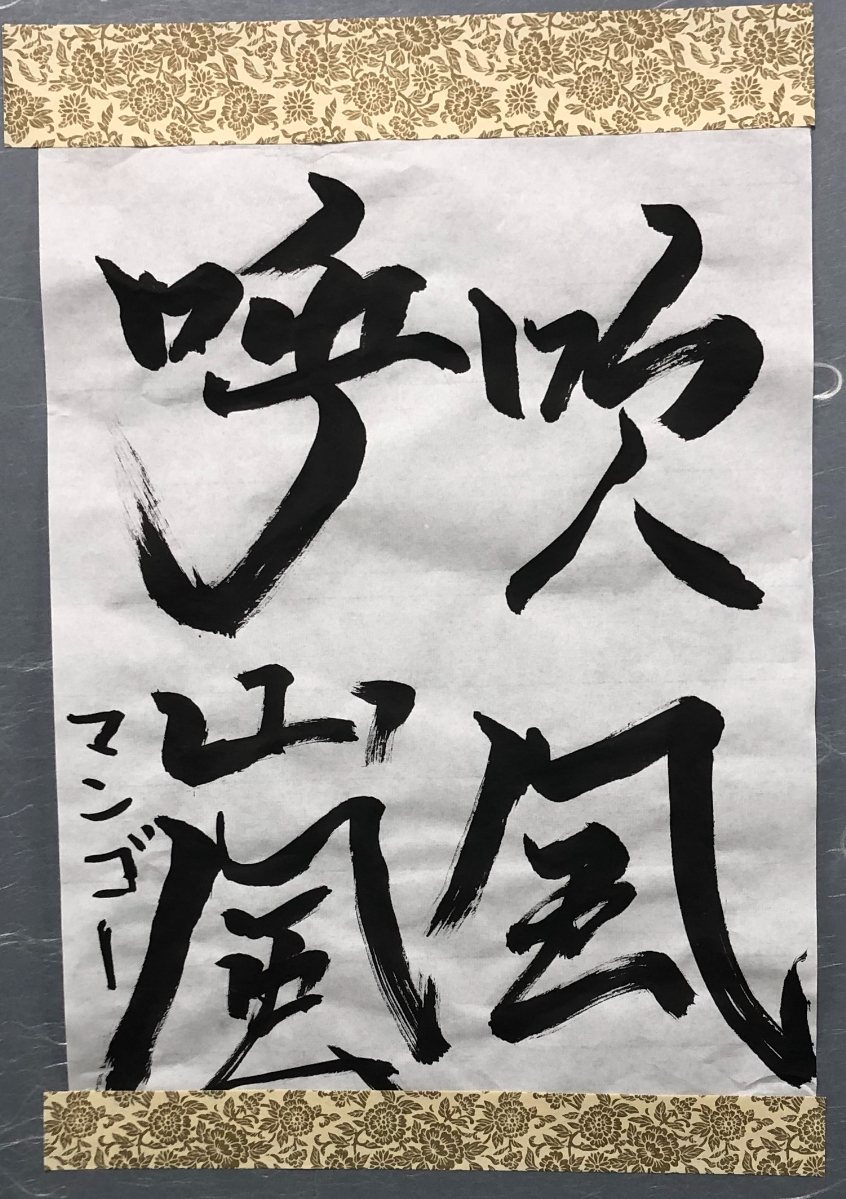 吹風
呼嵐
マンゴー